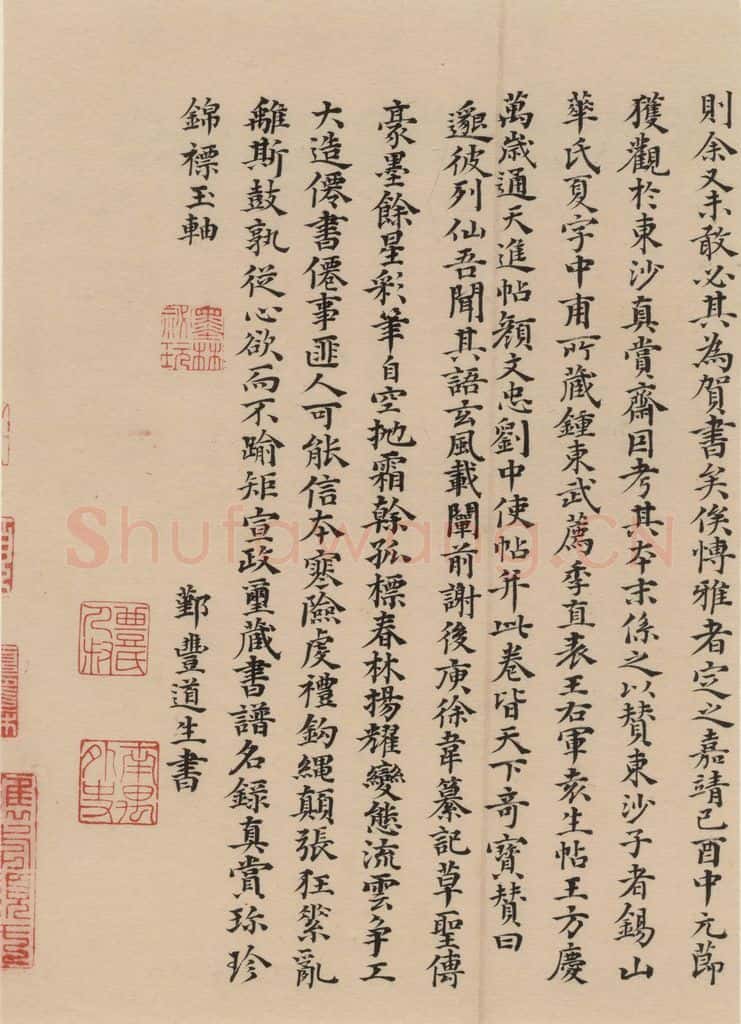 則余又未敢必其為賀書矣俟博雅者定之嘉靖己酉中元節
獲觀於東沙真賞齋因考其本末係之以贊東沙子者錫山
華氏夏字中甫所藏鍾東武薦季直表王右軍袁生帖王方慶
萬歲通天進帖顏文忠劉中使帖并此卷皆天下奇寶贊曰
邈彼列仙吾聞其語玄風載闡前謝後庾徐韋纂記草聖傳
豪墨餘星彩筆自空抛霜榦孤標春林揚耀變態流雲爭工
大造僊書僊事匪人可能信本寒險虔禮鉤繩顛張狂縈亂
離斯鼓孰從心欲而不踰矩宣政璽藏書譜名錄真賞珎珍
錦褾玉軸
鄞豐道生書
墨林
祕玩
豐氏
人叔
南禺
外史
Shufawang.CN